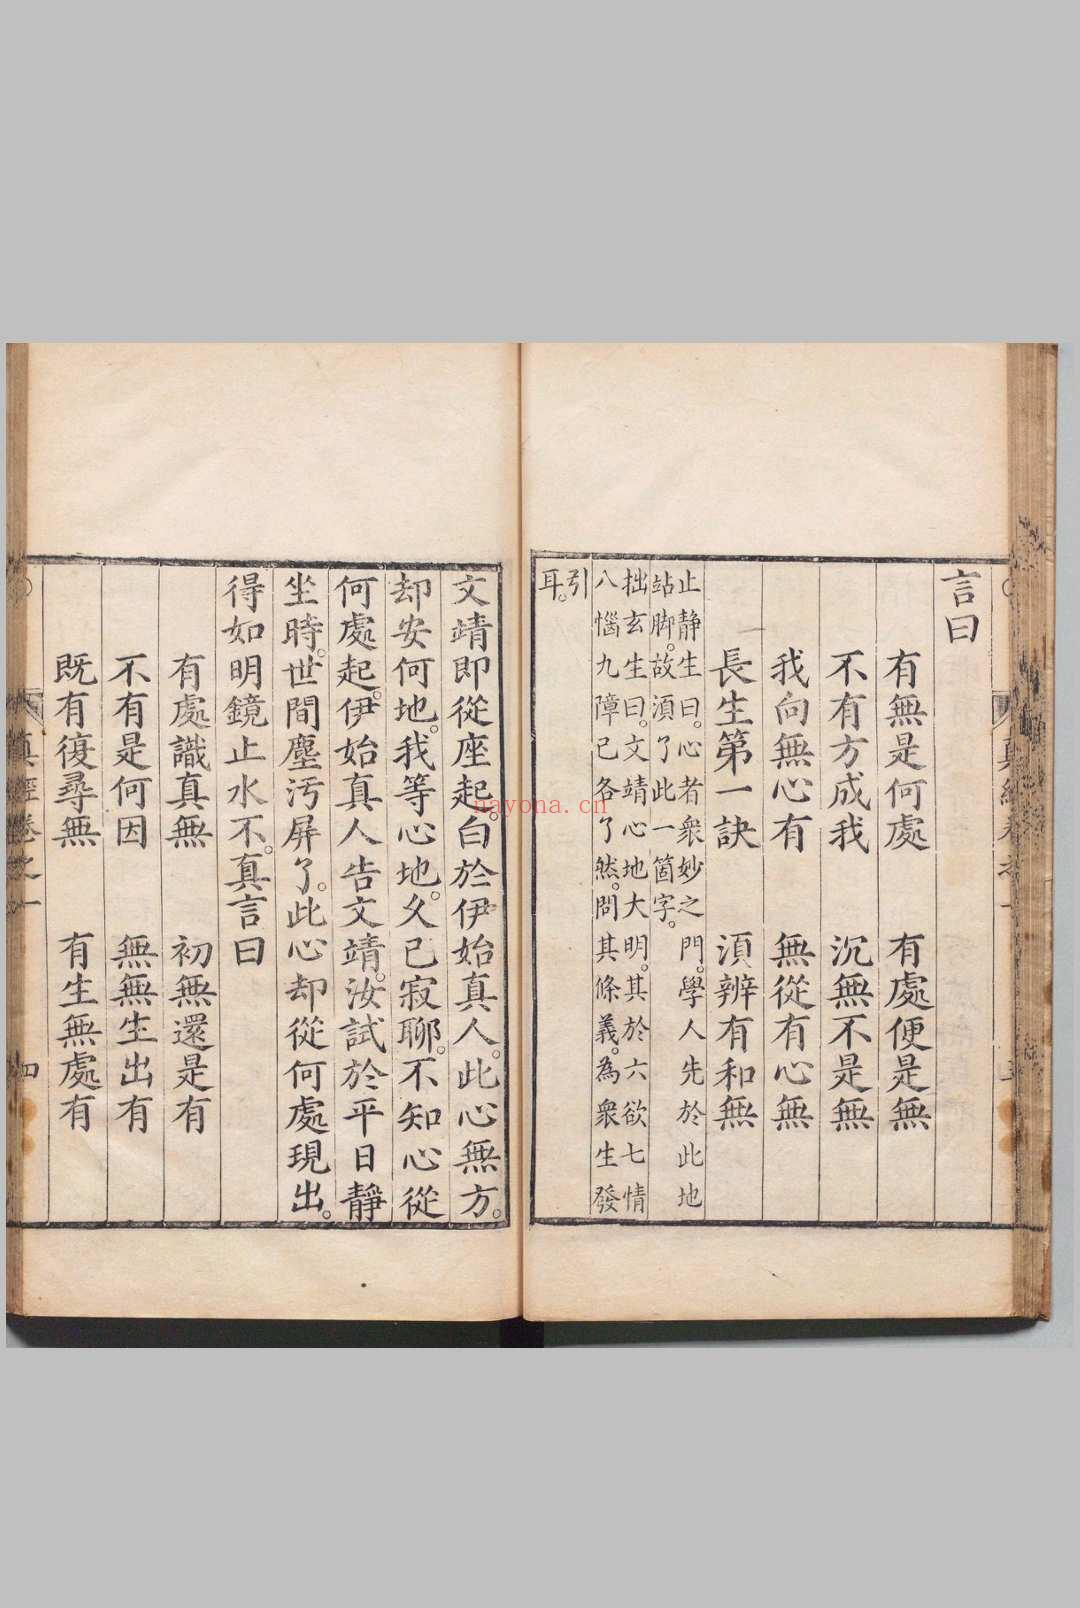 言曰
有無是何處 有處便是無
不有方成我 沉無不是無
我向無心有 無從有心無
長生第一訣 湏辨有和無
止靜生曰。心者衆妙之門。學人先於此地
站脚。故湏了此一箇字。
拙玄生曰。文靖心地大明。其於六欲七情
八惱九障已各了然。問其條義。為衆生發
引
耳。
文靖即從座起。白於伊始真人。此心無方。
却安何地。我等心地。久已寂聊。不知心從
何處起。伊始真人告文靖。汝試於平日靜
坐時。世間塵污屏了。此心却從何處現出。
得如明鏡止水不。真言曰
有處識真無 初無還是有
不有是何因 無無生出有
既有復尋無 有生無處有
真經卷之一 四
nayona.cn